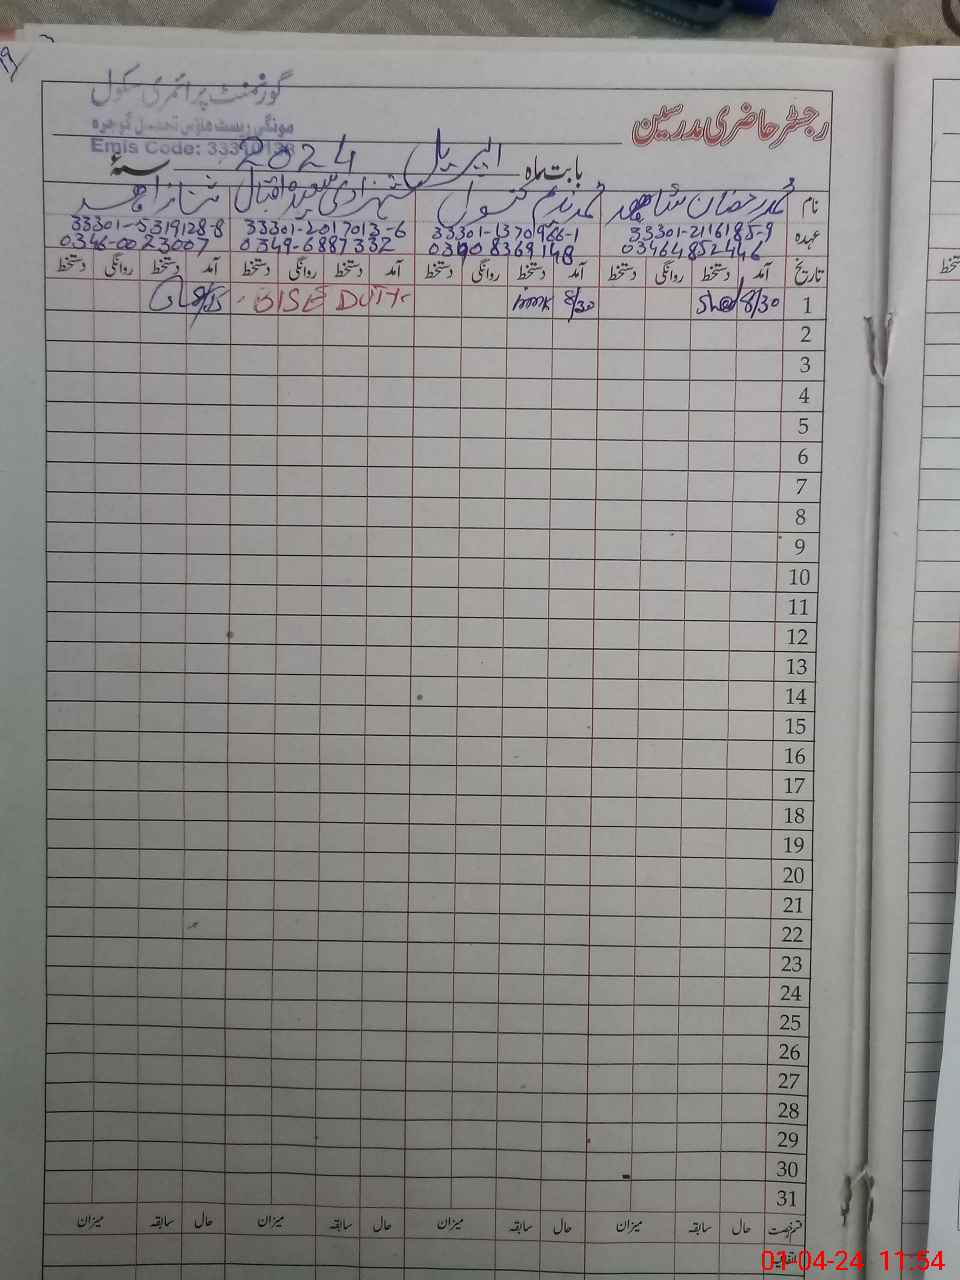 گورنمنٹ پرائمری سکول
مونگی ریسٹ ہاؤس تحصیل گوجرہ
Emis Code: 33310138
رجسٹر حاضری مدرسین
بابت ماہ اپریل 2024 سنہ
نام محمد رمضان شاھد محمد ندیم کنول شہزادی سعیدہ اقبال شہناز
عہدہ 33301-2116185-9 33301-1370966-1 33301-2017013-6 33301-5319128-8
03464852446 8369148 0349-6887332 0346-0023007
تاریخ آمد دستخط روانگی دستخط آمد دستخط روانگی دستخط آمد دستخط روانگی دستخط آمد دستخط روانگی دستخط
1 8/30 8/30 BISE DUTY 8/15
2
3
4
5
6
7
8
9
10
11
12
13
14
15
16
17
18
19
20
21
22
23
24
25
26
27
28
29
30
31
قسم رخصت حال سابقہ میزان حال سابقہ میزان حال سابقہ میزان حال سابقہ میزان
اتفاقیہ
01-04-24 11:54